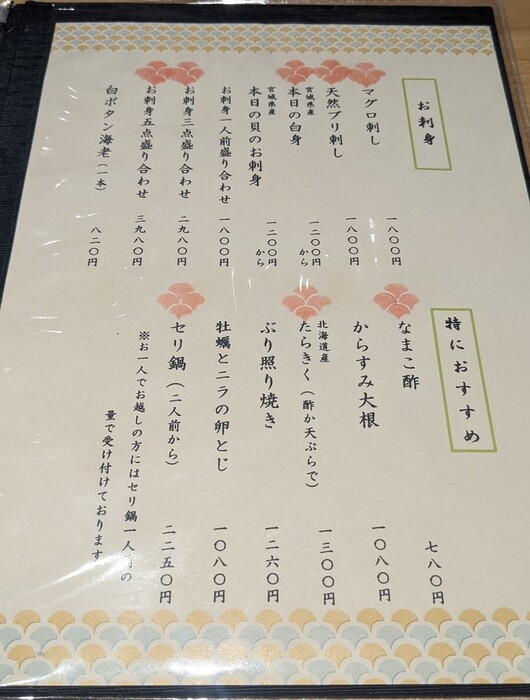 お刺身
マグロ刺し 一八〇〇円
天然ブリ刺し 一八〇〇円
宮城県産
本日の白身 一二〇〇円から
宮城県産
本日の貝のお刺身 一二〇〇円から
お刺身一人前盛り合わせ 一八〇〇円
お刺身三点盛り合わせ 二九八〇円
お刺身五点盛り合わせ 三九八〇円
白ボタン海老（一本） 八二〇円
特におすすめ
なまこ酢 七八〇円
からすみ大根 一〇八〇円
北海道産
たらきく（酢か天ぷらで） 一三〇〇円
ぶり照り焼き 一二六〇円
牡蠣とニラの卵とじ 一〇八〇円
セリ鍋（二人前から） 二二五〇円
※お一人でお越しの方にはセリ鍋一人前の
量で受け付けております